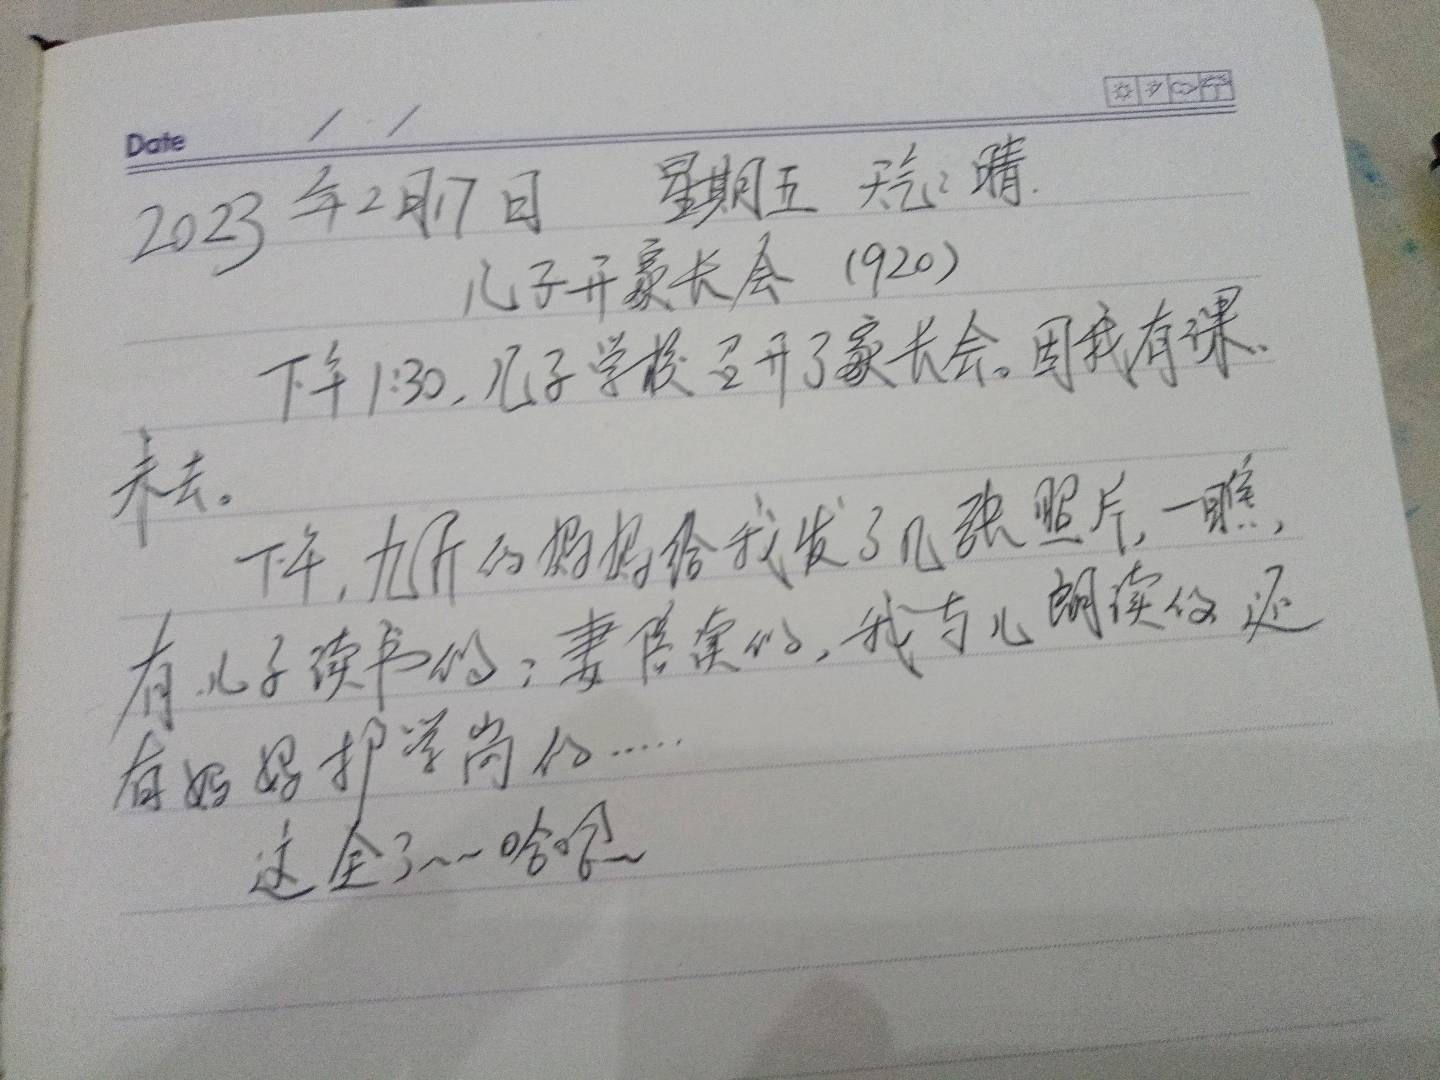 Date / /
2023年2月17日 星期五 天气:晴.
儿子开家长会 (920)
下午1:30,儿子学校召开了家长会。因我有课、
未去。
下午,九月的妈妈给我发了几张照片,一瞧,
有儿子读书的;妻陪读的,我与儿朗读的还
有妈妈护学岗的……
这全了~~哈哈~